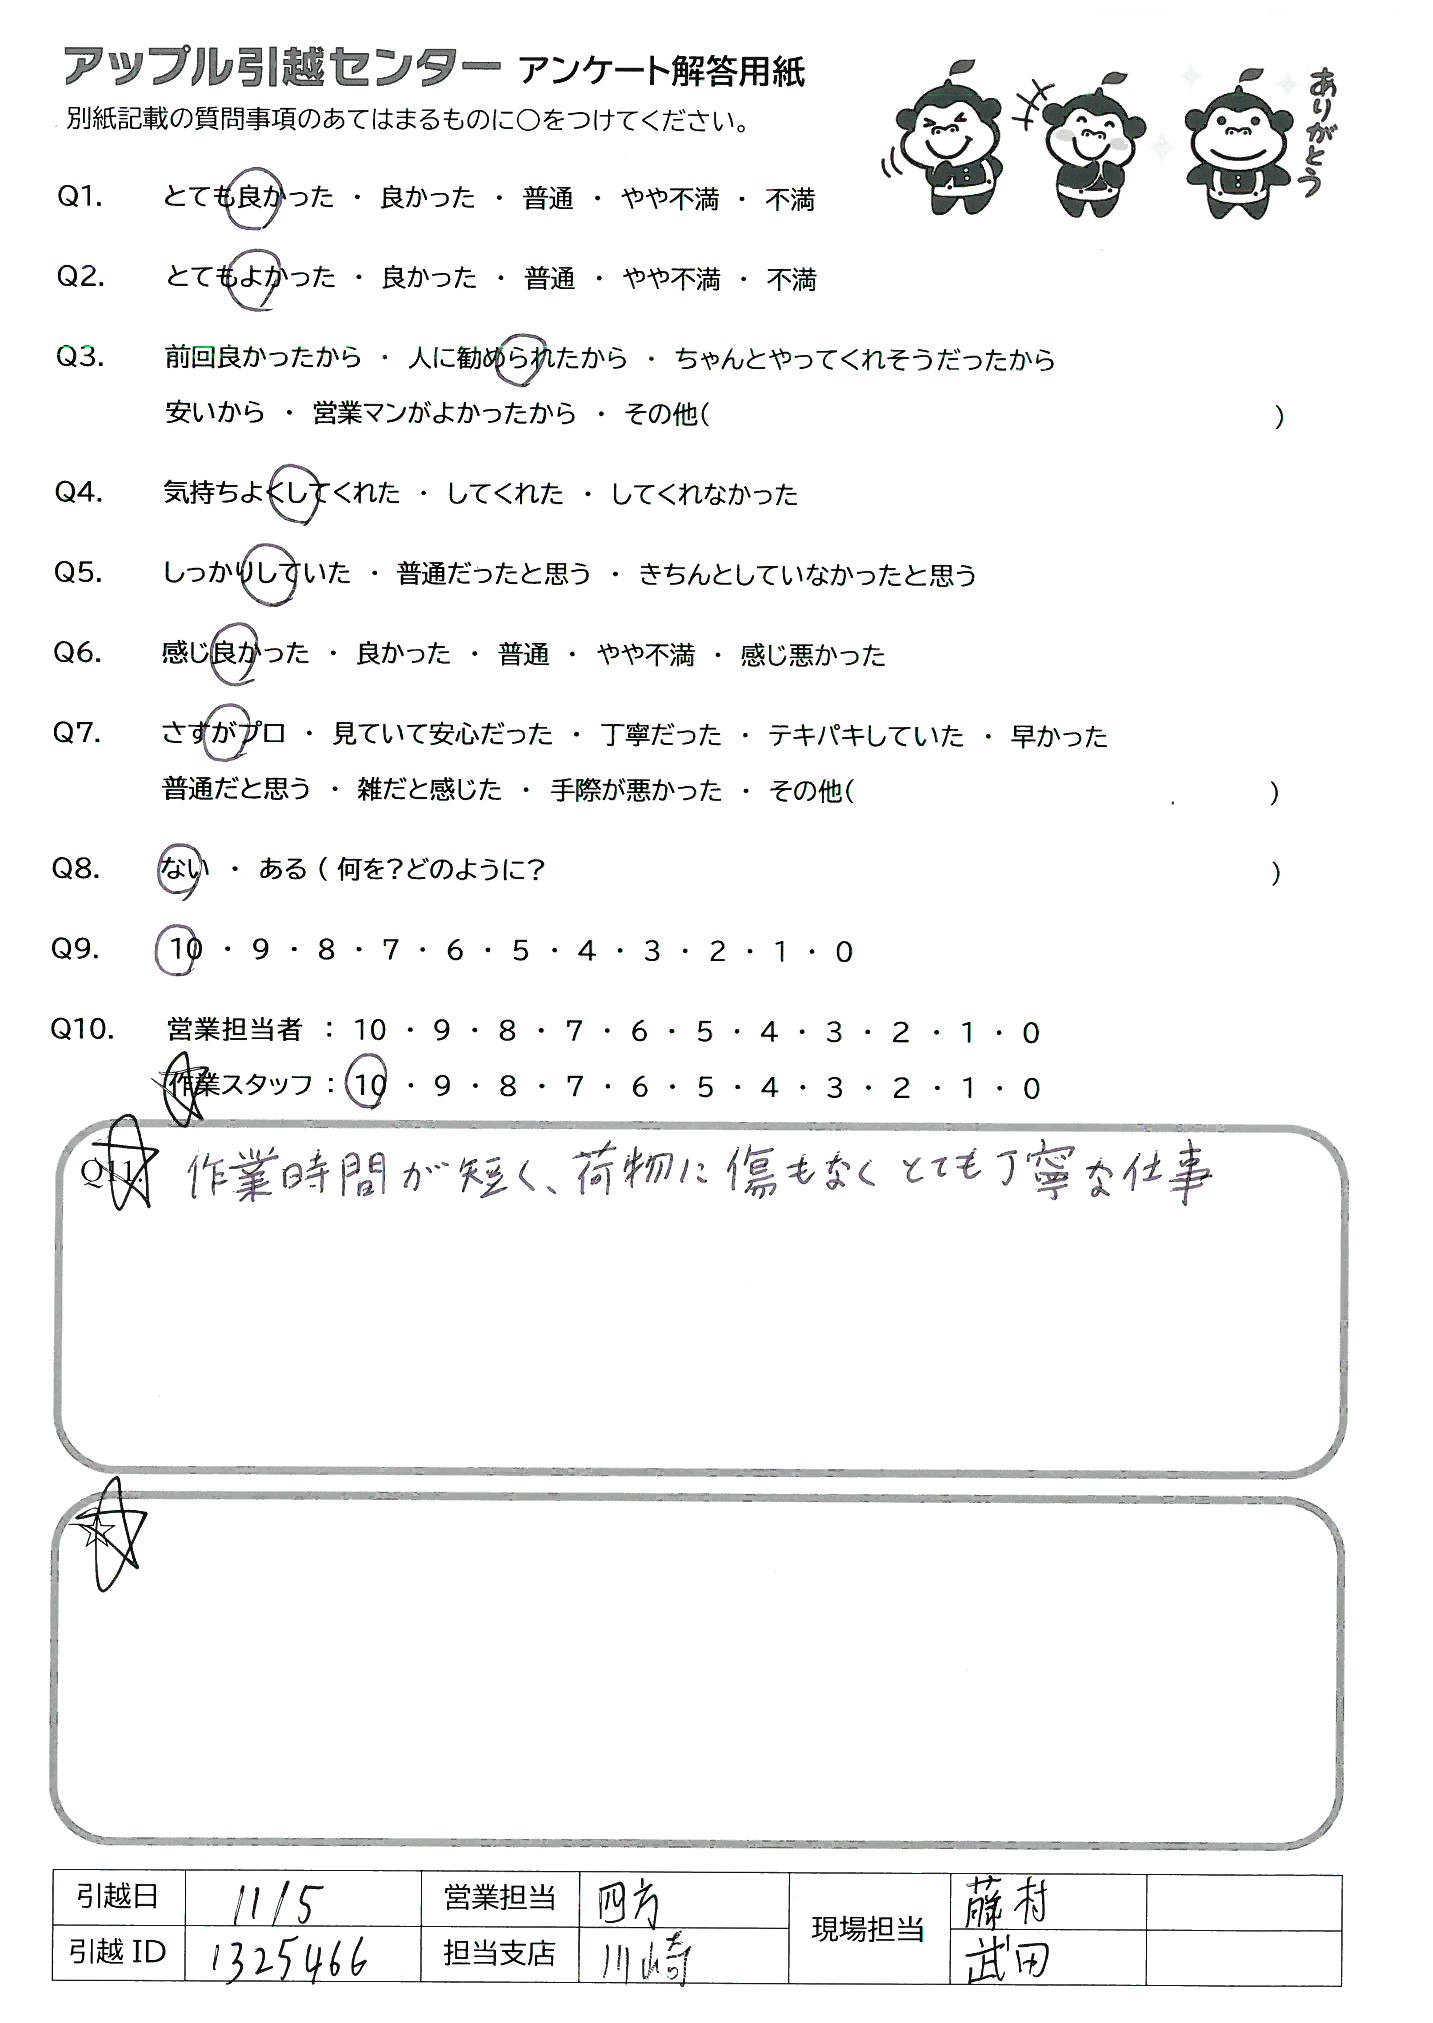 アップル引越センター アンケート解答用紙
別紙記載の質問事項のあてはまるものに○をつけてください。
ありがとう
Q1. とても良かった ・ 良かった ・ 普通 ・ やや不満 ・ 不満
Q2. とてもよかった ・ 良かった ・ 普通 ・ やや不満 ・ 不満
Q3. 前回良かったから ・ 人に勧められたから ・ ちゃんとやってくれそうだったから
安いから ・ 営業マンがよかったから ・ その他( )
Q4. 気持ちよくしてくれた ・ してくれた ・ してくれなかった
Q5. しっかりしていた ・ 普通だったと思う ・ きちんとしていなかったと思う
Q6. 感じ良かった ・ 良かった ・ 普通 ・ やや不満 ・ 感じ悪かった
Q7. さすがプロ ・ 見ていて安心だった ・ 丁寧だった ・ テキパキしていた ・ 早かった
普通だと思う ・ 雑だと感じた ・ 手際が悪かった ・ その他( )
Q8. ない ・ ある ( 何を?どのように? )
Q9. 10 ・ 9 ・ 8 ・ 7 ・ 6 ・ 5 ・ 4 ・ 3 ・ 2 ・ 1 ・ 0
Q10. 営業担当者 : 10 ・ 9 ・ 8 ・ 7 ・ 6 ・ 5 ・ 4 ・ 3 ・ 2 ・ 1 ・ 0
作業スタッフ : 10 ・ 9 ・ 8 ・ 7 ・ 6 ・ 5 ・ 4 ・ 3 ・ 2 ・ 1 ・ 0
Q11. 作業時間が短く、荷物に傷もなくとても丁寧な仕事
☆
引越日 11/5 営業担当 四方 現場担当 藤村
引越ID 1325466 担当支店 川崎 武田